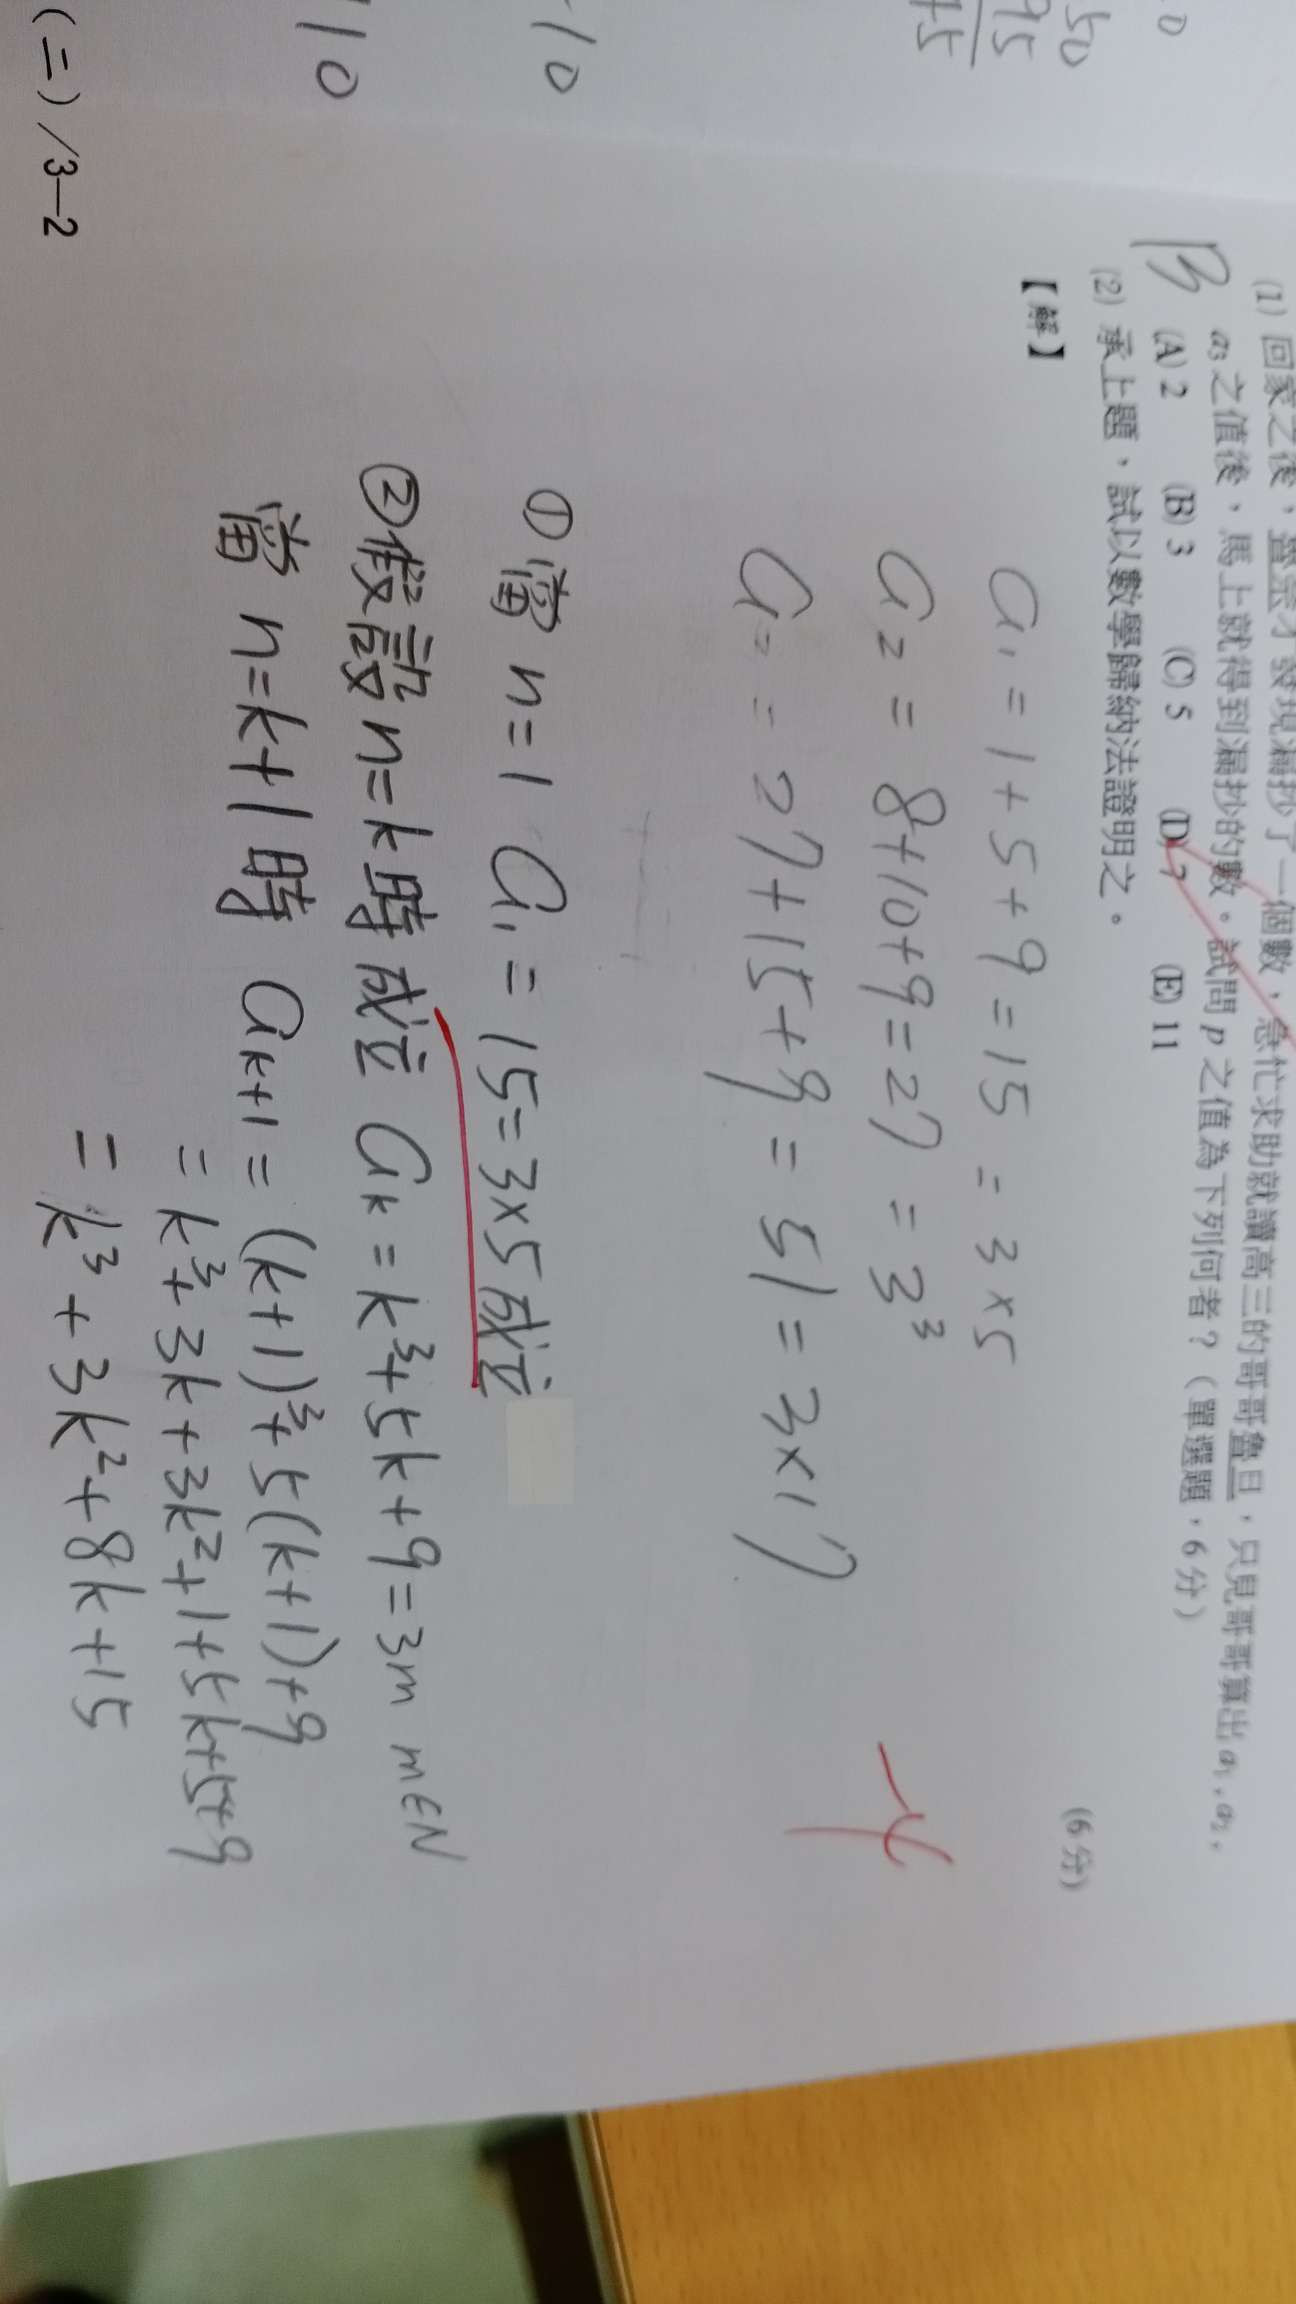 0
50
95
45
10
10
(1) 回家之後，壘奈才發現漏抄了一個數，急忙求助就讀高三的哥哥魯旦，只見哥哥算出 a₁、a₂、
a₃ 之值後，馬上就得到漏抄的數。試問 p 之值為下列何者？（單選題，6 分）
B (A) 2 (B) 3 (C) 5 (D) 7 (E) 11
(2) 承上題，試以數學歸納法證明之。
(6 分)
【解】
a₁ = 1+5+9 = 15 = 3×5
a₂ = 8+10+9 = 27 = 3³
a = 27+15+9 = 51 = 3×17
-4
① 當 n=1 a₁ = 15 = 3×5 成立
② 假設 n=k 時 成立 aₖ = k³+5k+9 = 3m m∈N
當 n=k+1 時 aₖ₊₁ = (k+1)³+5(k+1)+9
= k³+3k+3k²+1+5k+5+9
= k³+3k²+8k+15
(二)／3—2